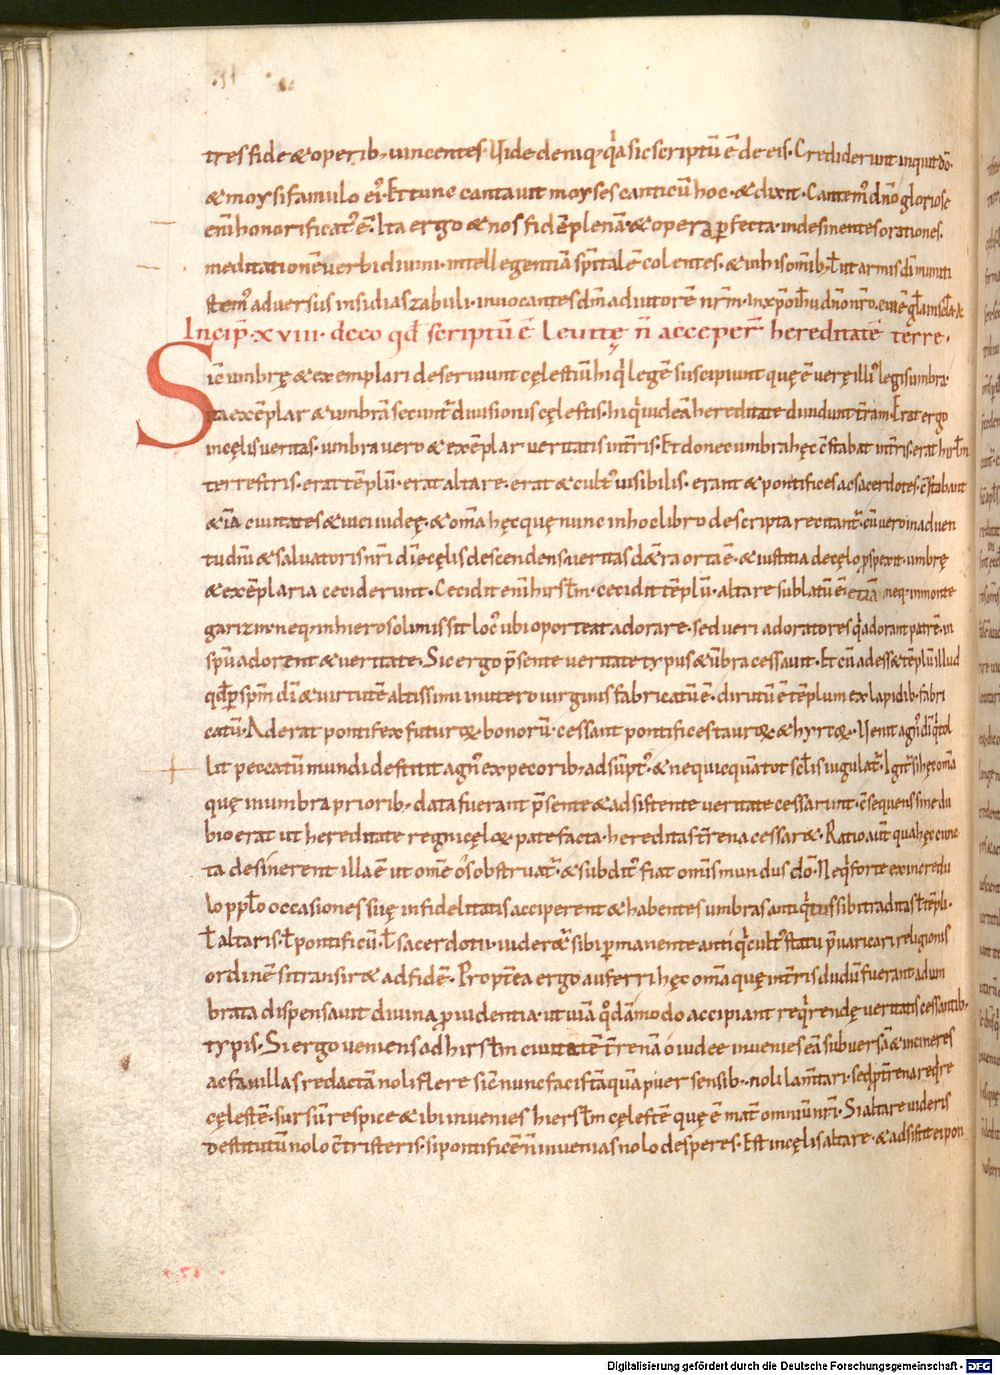 tres fide & operib; uincentes. Uide deniq; q̇a sic scriptū ē de eis. Crediderunt inquit dō.
& moysi famulo ei'. Et tunc cantauit moyses canticū hoc. & dixit. Cantem' dn̄o gloriose
enī honorificat' ē. Ita ergo & nos fidē plenā. & opera ꝑfecta. indesinentes orationes.
meditationē uerbi diuini. intellegentiā sp̄italē colentes. & in his om̄ib; uelut armis dī muniti
stem' aduersus insidias zabuli. inuocantes dm̄ adiutorē nr̄m. in xp̄o ih̄u dn̄o nr̄o. cui ē gl̄a in scl̄a. &
Incip̄. xviii. de eo qđ scriptū ē leuitę n̄ acceper̄ hereditatē terre.
Sic umbrę & exemplari deseruiunt cęlestiū hi q̇ legē suscipiunt quę ē uerę illi' legis umbra.
ita exēplar & umbrā secunt̄ diuisionis cęlestis. hi q̇ iudeā hereditate diuidunt t̄ram. Erat ergo
in cęlis ueritas. umbra uero & exēplar ueritatis in t̄ris. Et donec umbra hęc c̄stabat in t̄ris. erat hirl̄m
terrestris. erat tēplū. erat altare. erat & cult' uisibilis. erant & pontifices ac sacerdotes. c̄stabant
& iā ciuitates & uici iudeę. & om̄a hęc quę nunc in hoc libro descripta recitant̄. cū uero in aduen
tu dn̄i & saluatoris nr̄i dī e cęlis descendens ueritas d& ra orta ē. & iustitia de cęlo ꝓspexit. umbrę
& exēplaria ceciderunt. Cecidit enī hirsl̄m. cecidit tēplū. altare sublatū ē. etiā neq; in monte
garizim. neq; in hierosolimis sit loc' ubi oporteat adorare. sed ueri adoratores q̇ adorant patrē. in
sp̄u adorent & ueritate. Sic ergo p̄sente ueritate typus & ūbra cessauit. Et cū adess& tēplū illud
qđ ꝑ sp̄m dī & uirtutē altissimi in utero uirginis fabricatū ē. dirutū ē tēplum ex lapidib; fabri
catū. Aderat pontifex futuroꝝ. bonorū. cessant pontifices tauroꝝ & hyrcoꝝ. Uenit agn' dī q̇ tol
lit peccatū mundi destitit agn' ex pecorib; adsūpt'. & nequicquā tot scl̄is iugulat̄. Igit̄ si hęc om̄a
quę in umbra priorib; data fuerant p̄sente & adsistente ueritate cessarunt. c̄sequens sine du
bio erat ut hereditate regni cęloꝝ. patefacta. hereditas t̄rena cessar&. Ratio aut̄ qua hęc cunc
ta desinerent illa ē ut om̄e ōs obstruat̄. & subdit' fiat om̄is mundus dō. Ne q̇ forte ex incredu
lo ppl̄o occasiones suę infidelitatis acciperent & habentes umbras antiq̇tus sibi traditas ł tēpli.
ł altaris. ł pontificū. ł sacerdotū. uideret̄ sibi ꝑmanente antiq̇ cult' statu p̄uaricari religionis
ordinē si transir& ad fidē. Propt̄ea ergo auferri hęc om̄a quę in t̄ris dudū fuerant adum
brata dispensauit diuina ꝓuidentia. ut uiā q̇dāmodo accipiant req̇rendę ueritatis cessantib;
typis. Si ergo ueniens ad hirsl̄m ciuitatē t̄renā o iudee inuenies eā subuersā & in cineres
ac fauillas redactā noli flere sic̄ nunc facis tāquā puer sensib; noli lam̄tari. sed ꝓ t̄rena req̇re
cęlestē. sursū respice & ibi inuenies hiersl̄m cęlestē quę ē mat̄ omniū nr̄i. Si altare uideris
destitutū nolo c̄tristeris. si pontificē n̄ inuenias nolo desperes. Est in cęlis altare. & adsistit ei pon
Digitalisierung gefördert durch die Deutsche Forschungsgemeinschaft - DFG